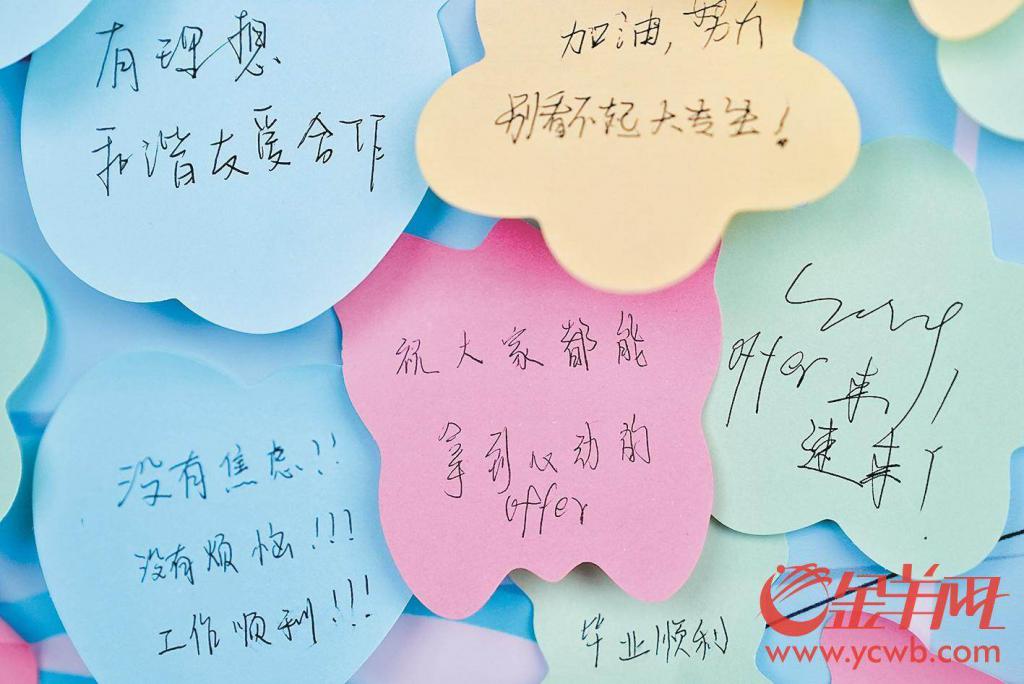 有理想
和谐友爱合作
加油，努力
别看不起大专生！
祝大家都能
拿到心动的
offer
offer 来！
速来！
没有焦虑！！
没有烦恼！！！
工作顺利！！！
毕业顺利
金羊网
www.ycwb.com